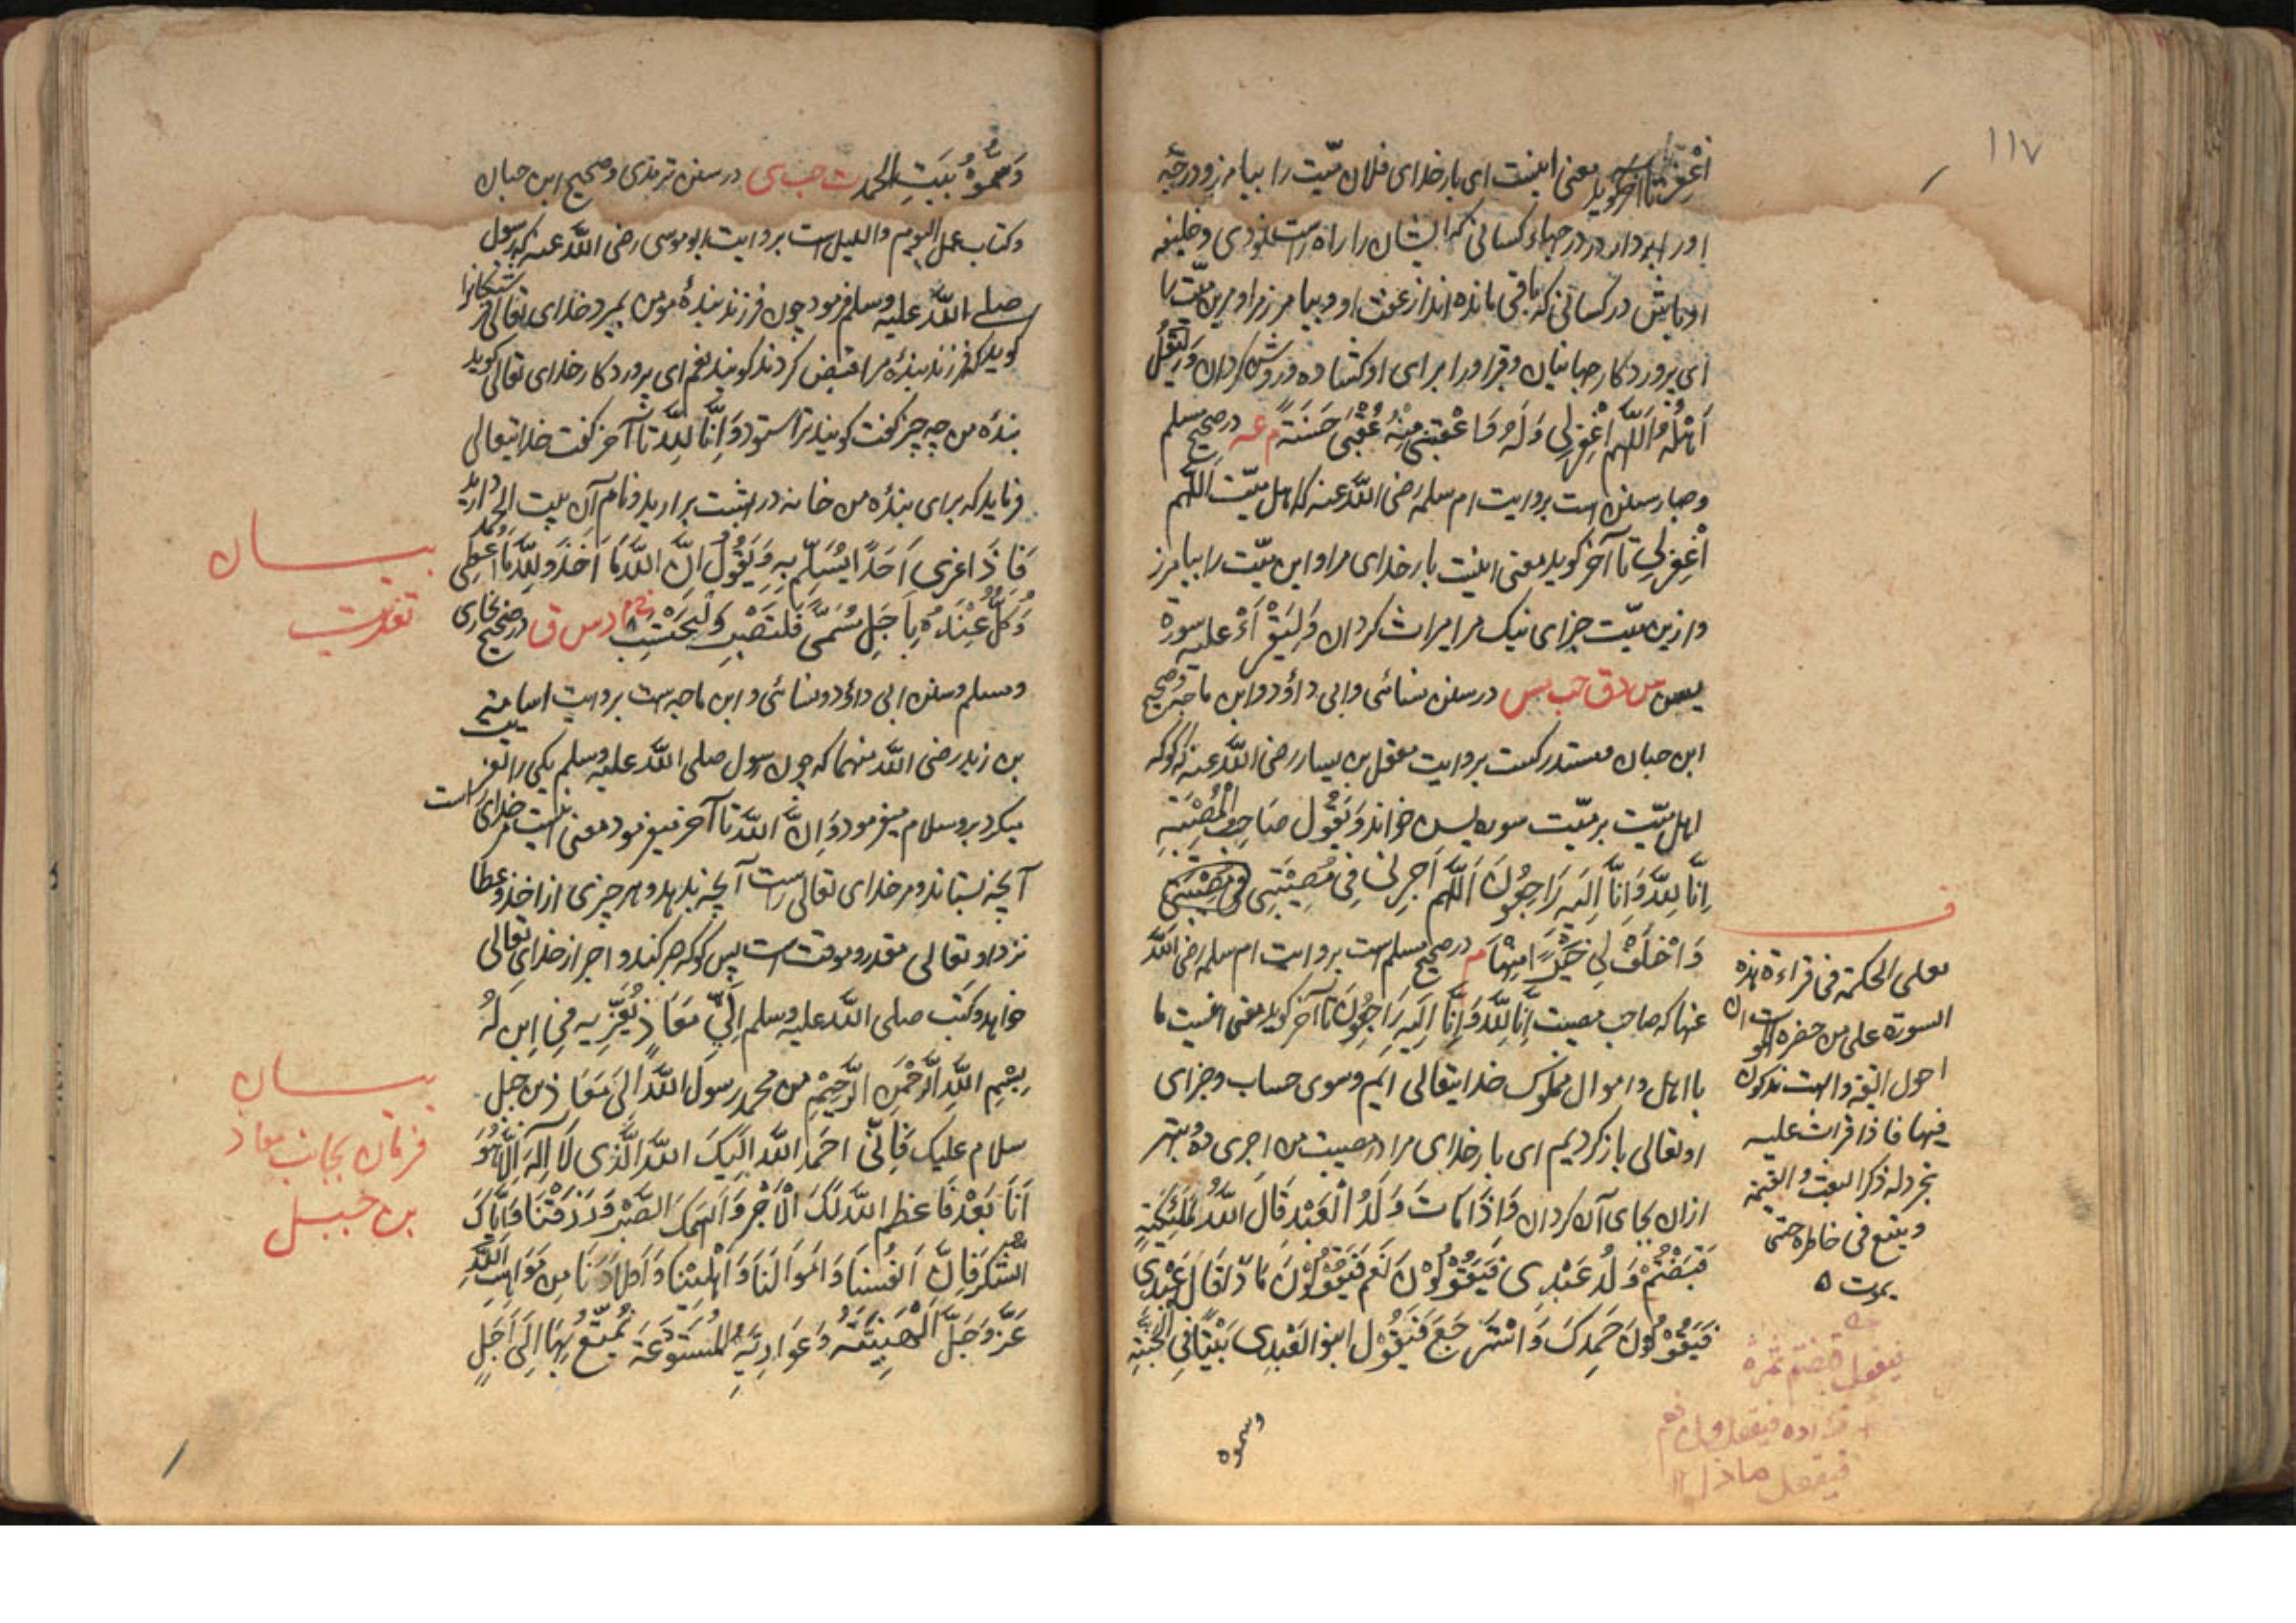 ١١٧
اغْفِرْ تا آخر گوید معنی اینست ای بار خدای فلان میّت را بیامرز و درجهٔ
او را بردار در درجهاء کسانی که ایشان را راه راست نمودی و خلیفه
او باش در کسانی که باقی مانده اند از عقب او و بیامرز مرا و مر این میّت را
ای پروردکار جهانیان و قبر او را برای او کشاده و روشن کردان وَلْیَقُلْ
اَهْلُهُ اَللّهم اغْفِرْلِی وَلَهُ وَاَعْقِبْنِی مِنْهُ عُقْبیً حَسَنَةً م عه در صحیح مسلم
و چهار سنن است بروایت ام سلمه رضی اللّه عنه که اهل میّت اللّهم
اغْفِرْلِی تا آخر کوید معنی اینست بار خدای مرا و این میّت را بیامرز
و ازین میّت جزای نیک مرا میراث کردان وَلْیَقْرَأْ علیه سورة
یس س د ق حب مس در سنن نسائی و ابی داؤد و ابن ماجه و صحیح
ابن حبان و مستدرکست بروایت معقل بن یسار رضی اللّه عنه که کو که
اهل میّت بر میّت سوره یس خواند وَیَقُول صَاحِب الْمُصِیْبَةِ
اِنَّا لِلّه وَاِنَّا اِلَیْهِ رَاجِعُونَ اَللّهم اَجِرْنی فِی مُصِیْبَتِی فی مصیبتی
وَاخْلُفْ لِی خَیْرًا مِنْهَا م در صحیح مسلم است بروایت ام سلمه رضی اللّه
عنها که صاحب مصیبت اِنَّا لِلّه وَاِنَّا اِلَیْهِ رَاجِعُونَ تا آخر کوید معنی اینست ما
با اهل و اموال مملوک خدایتعالی ایم و سوی حساب و جزای
او تعالی باز کردیم ای بار خدای مرا در مصیبت من اجری ده و بهتر
ازان بجای آن کردان وَاِذَا مَاتَ وَلَدُ الْعَبْدِ قَالَ اللّهُ لِمَلٰئِکَتِهِ
قَبَضْتُمْ وَلَدَ عَبْدِی فَیَقُوْلُوْنَ نَعَم فَیَقُوْلُ مَاذَا قَالَ عَبْدِی
فَیَقُوْلُوْنَ حَمِدَکَ وَاسْتَرْجَعَ فَیَقُوْلُ ابنوا لعَبْدِی بَیْتًا فِی الْجَنَّةِ
وسموه
لعلی الحکمة فی قراءة هذه
السورة علی من حضره الموت ان
احول القیمة والبعث مذکورة
فیها فاذا قرات علیه
تجرد له ذکر البعث والقیمة
ویقع فی خاطره حتی
یموت
فیقول قبضتم ثمره
فواده فیقولون نعم
فیقول ماذا
وَسَمُّوْهُ بَیْتَ الحمد ت حب ی در سنن ترمذی و صحیح ابن حبان
و کتاب عمل الیوم و اللیل است بروایت ابو موسی رضی اللّه عنه که رسول
صلی اللّه علیه وسلم فرمود چون فرزند بندهٔ مومن بمیرد خدای تعالی فرشتکانرا
کوید که فرزند بندهٔ مرا قبض کردند کویند نعم ای پروردکار خدای تعالی کوید
بندهٔ من چه چیز کفت کویند ترا ستود وَاِنَّا لِلّه تا آخر کفت خدایتعالی
فرماید که برای بندهٔ من خانه در بهشت برارید و نام آن بیت الحمد دارید
فَاِذَا عزی اَحَدًا یُسَلِّمُ بِهِ وَیَقُوْلُ اِنَّ اللّهَ مَا اَخَذَ وَلِلّهِ مَا اَعْطی
وَکُلٌّ عِنْدَهُ بِاَجَلٍ مُسَمًّی فَلْتَصْبِرْ وَلْتَحْتَسِبْ خ م د س ق در صحیح بخاری
و مسلم و سنن ابی داؤد و نسائی و ابن ماجه است بروایت اسامه
بن زید رضی اللّه عنهما که چون رسول صلی اللّه علیه وسلم یکی را تعزیت
میکرد برو سلام میفرمود وَاِنَّ اللّه تا آخر میفرمود معنی اینست مر خدای راست
آنچه بستاند و مر خدای تعالی راست آنچه بدهد و هر چیزی از اخذ و عطا
نزد او تعالی مقدر و موقت است پس کو که صبر کند و اجر از خدای تعالی
خواهد وکَتب صلی اللّه علیه وسلم اِلَی مُعَاذٍ یُعَزِّیهِ فِی ابْنٍ لَهُ
بِسْمِ اللّهِ الرَّحْمٰنِ الرَّحِیْمِ من محمد رسول اللّه اِلَی مُعَاذ بن جبل
سلام علیک فَاِنِّی احمد اللّه اِلَیْکَ اللّه الَّذی لَا اِلٰهَ اِلَّا هُوَ
اَمَّا بَعْد فَاعظم اللّه لَکَ الْاَجْرَ وَاَلهَمَکَ الصَّبْرَ وَرَزَقْنَا وَاِیَّاکَ
الشُّکْرَ فَاِنَّ اَنْفُسَنَا وَاَمْوَالَنَا وَاَهْلِیْنَا وَاَوْلَادَنَا مِن مَوَاهِبِ اللّهِ
عَزَّ وَجَلَّ الْهَنِیْئَةِ وَعَوَارِیَهُ الْمُسْتَوْدَعَةَ یُمَتَّعُ بِهَا اِلَی اَجَلٍ
بیــان
تعزیت
بیــان
فرمان بجانب معاذ
بن جبل